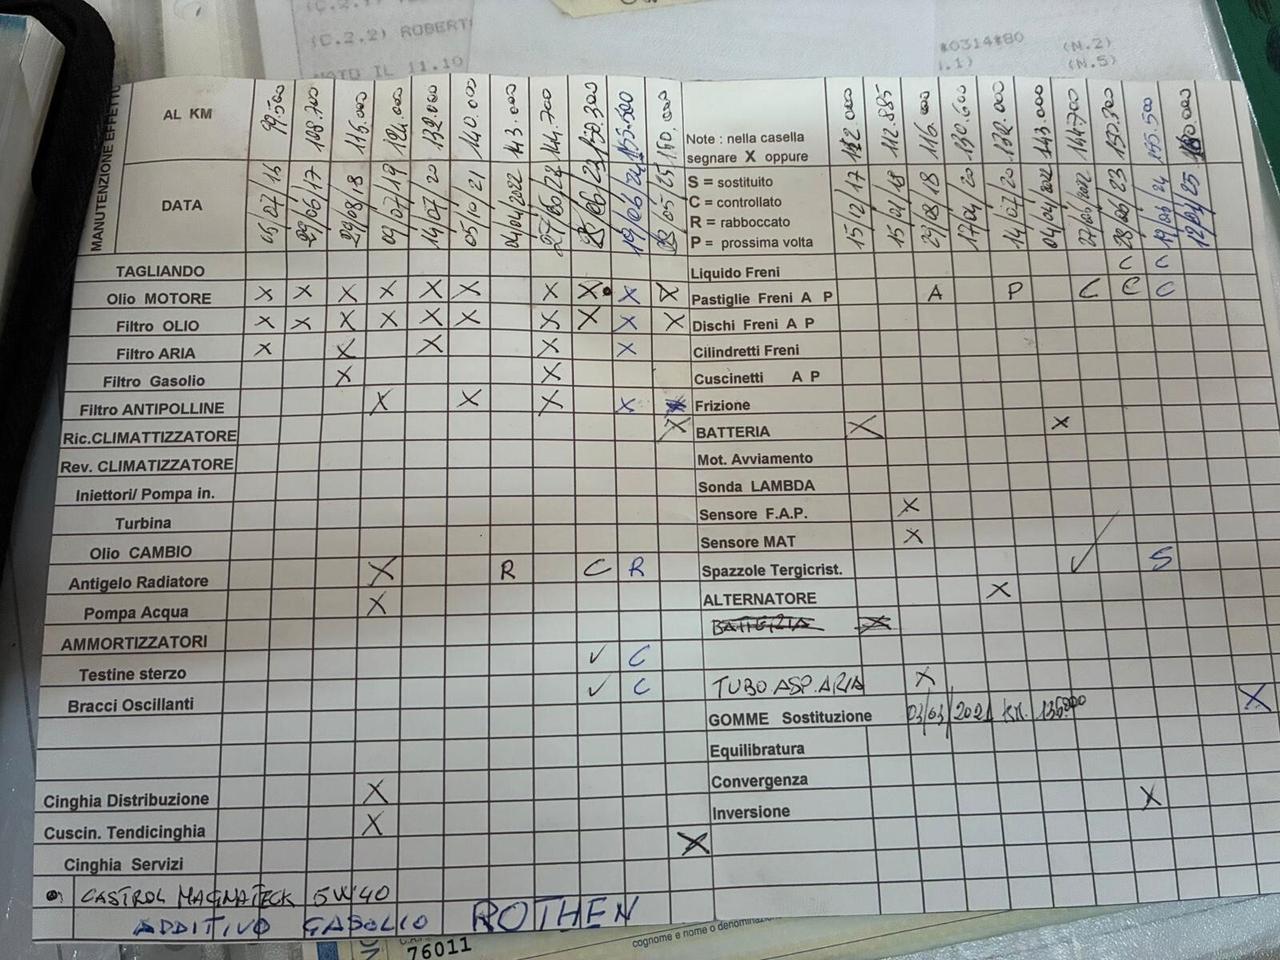 (C.2.2) ROBERT
NATO IL 11.10
*0314*80 (N.2)
.1) (N.5)
MANUTENZIONE EFFETT
AL KM 99.500 108.700 115.000 124.000 132.000 140.000 143.000 144.700 150.300 155.500 160.000
DATA 05/07/16 29/06/17 29/08/18 09/07/19 14/07/20 05/10/21 04/04/2022 28/06/23 19/06/24
Note : nella casella
segnare X oppure
S = sostituito
C = controllato
R = rabboccato
P = prossima volta
112.885 116.000 130.600 132.000 143.000 144.700 150.300 155.500
15/12/17 15/01/18 17/04/20 14/07/20 04/04/2022 27/06/2022 28/06/23 19/06/24
TAGLIANDO
Olio MOTORE X X X X X X X X X X
Filtro OLIO X X X X X X X X X X
Filtro ARIA X X X X X
Filtro Gasolio X X
Filtro ANTIPOLLINE X X X X
Ric.CLIMATTIZZATORE X
Rev. CLIMATIZZATORE
Iniettori/ Pompa in.
Turbina
Olio CAMBIO
Antigelo Radiatore X R C R
Pompa Acqua X
AMMORTIZZATORI
Testine sterzo ✓ C
Bracci Oscillanti ✓ C
Cinghia Distribuzione X
Cuscin. Tendicinghia X
Cinghia Servizi X
Liquido Freni C C
Pastiglie Freni A P A P C C C
Dischi Freni A P
Cilindretti Freni
Cuscinetti A P
Frizione
BATTERIA X X
Mot. Avviamento
Sonda LAMBDA
Sensore F.A.P. X
Sensore MAT X
Spazzole Tergicrist. ✓ S
ALTERNATORE X
BATTERIA X
TUBO ASP. ARIA X
GOMME Sostituzione 03/03/2021 KM. 136.000 X
Equilibratura
Convergenza
Inversione X
CASTROL MAGNATECK 5W40
ADDITIVO GASOLIO ROTHEN
76011
cognome e nome o denominazio